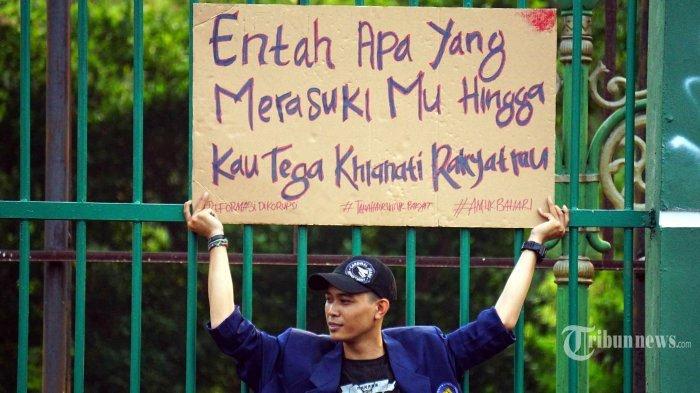 Entah Apa Yang
Merasuki Mu Hingga
Kau Tega Khianati Rakyatmu
#REFORMASIDIKORUPSI #TANAHAIRUNTUKRAKYAT #AMUKBAHARI
Tribunnews.com